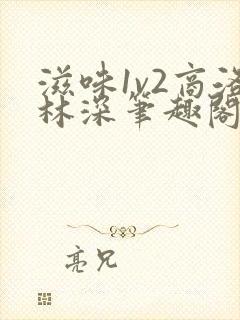 滋味1v2高洛
林深笔趣阁
亮兄